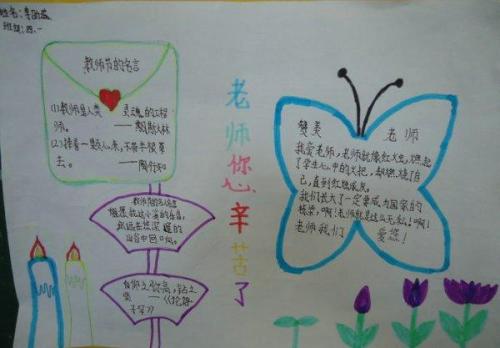 姓名：李
班级：四.一
教师节的名言
(1)教师是人类灵魂的工程
师。——斯大林
(2)捧着一颗心来，不带半根草
去。——陶行知
教师节的名言
山谷中回响。
仰之弥高，钻之
弥坚——《论语
子罕》
老师你心辛苦了
赞美老师
我爱老师，老师就像红火虫，燃起
了学生心中的火把，却燃烧了自
己，直到红烛成灰。
我们长大了一定要成为国家的
栋梁，啊！老师就是这么无私！啊！
老师我们爱您！